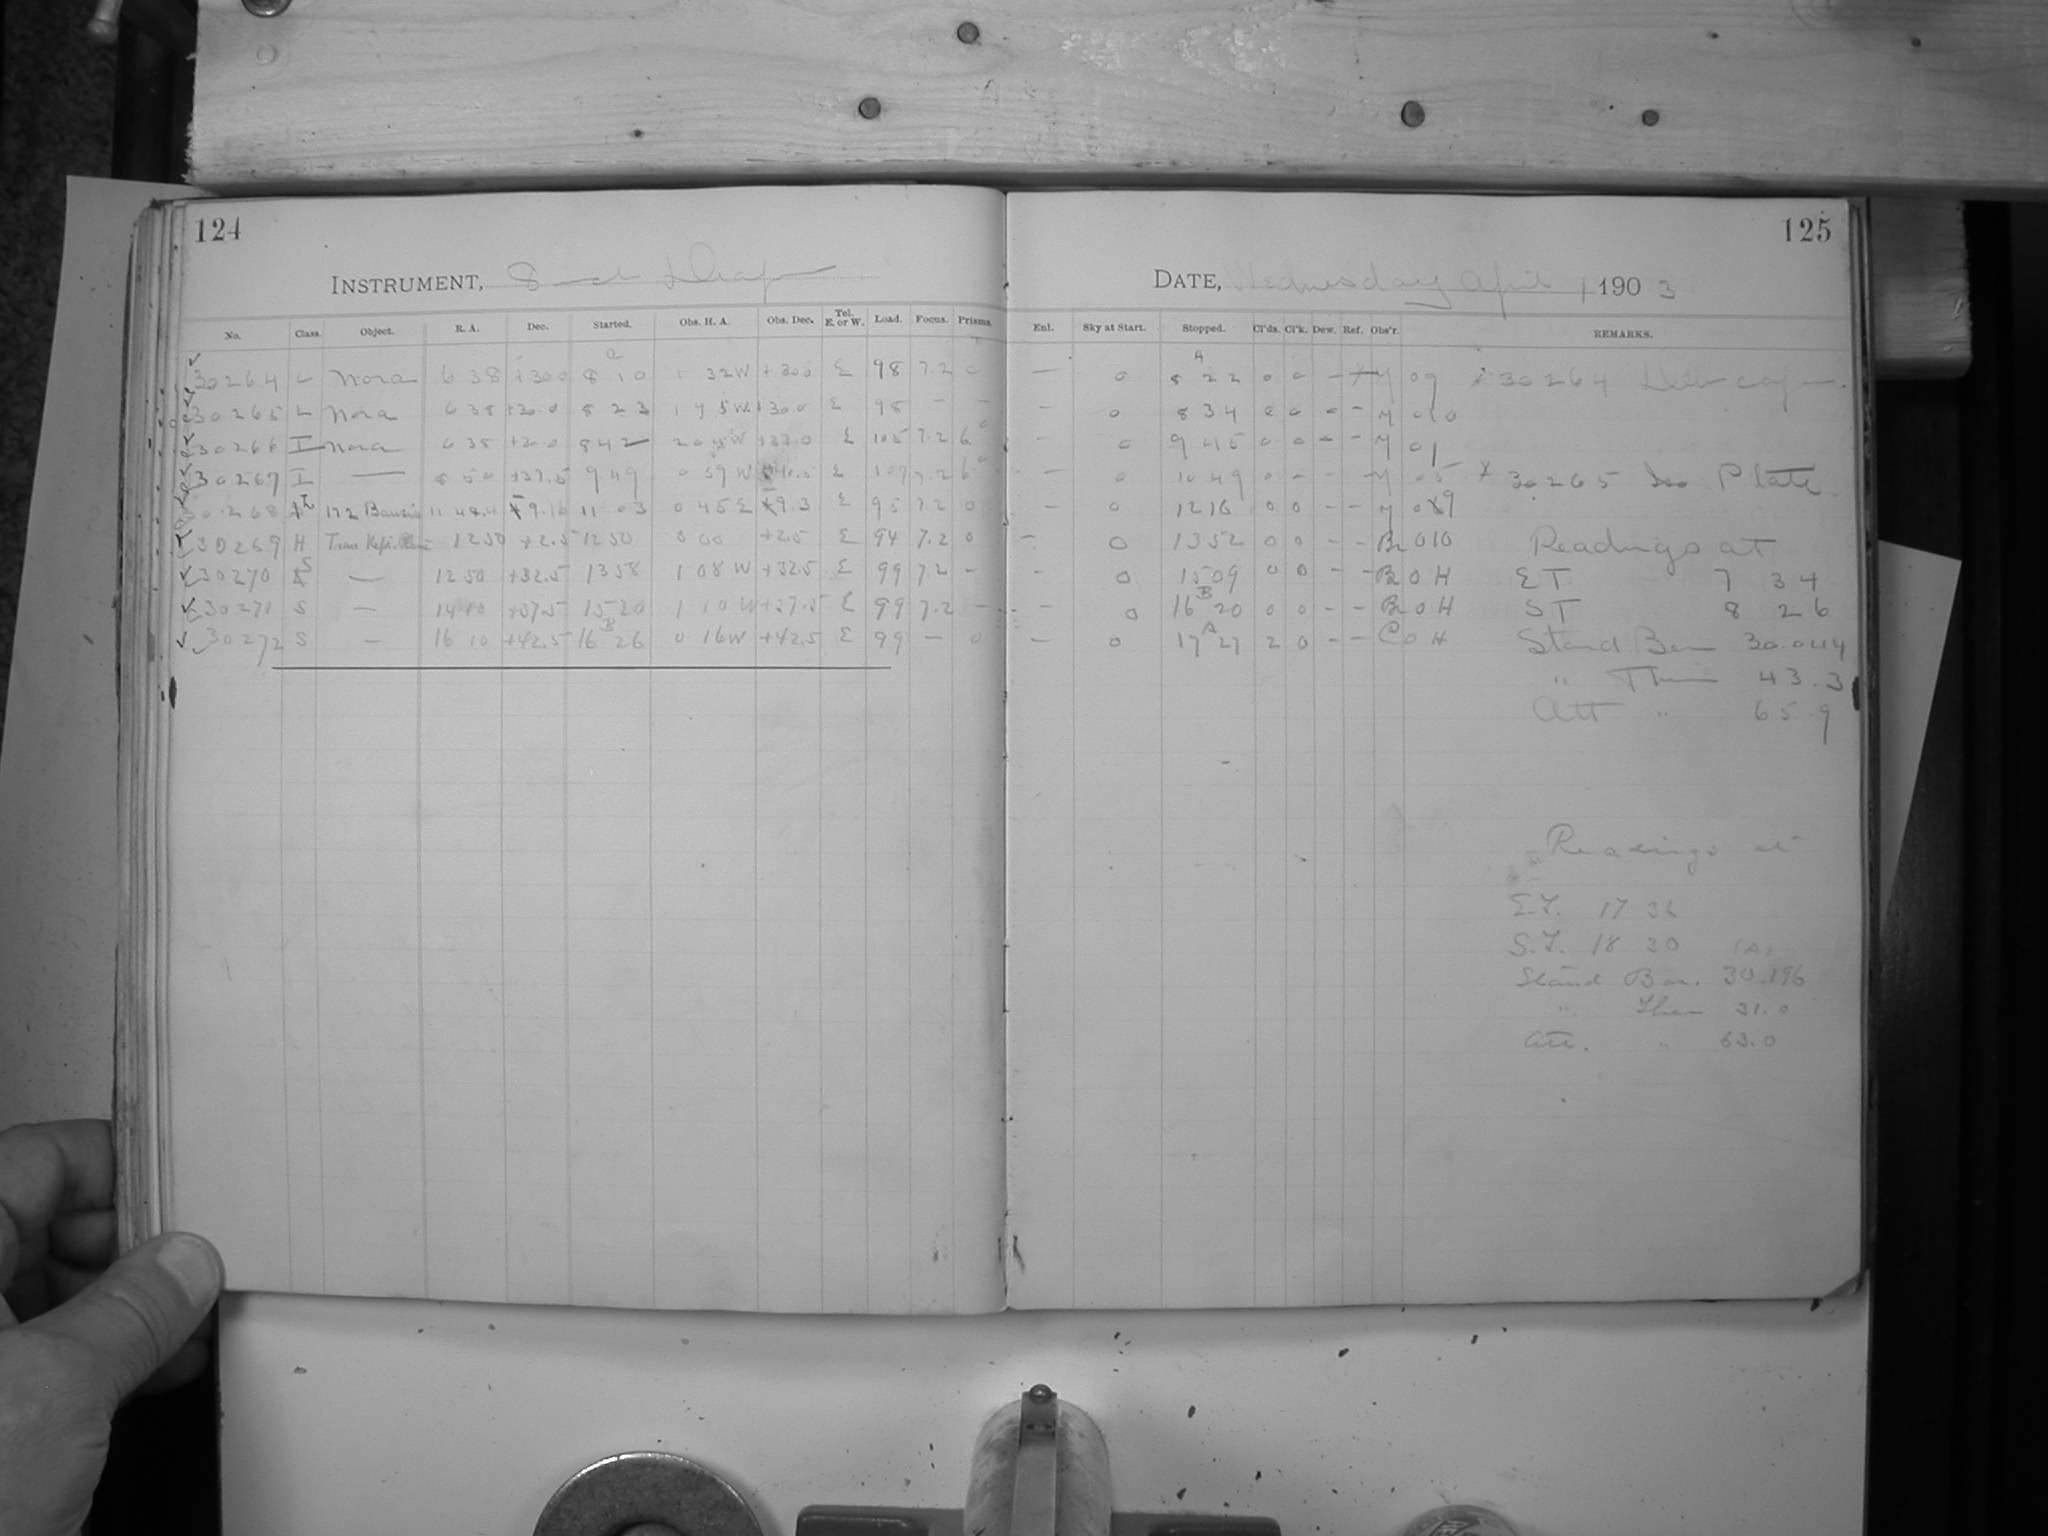 124
INSTRUMENT, 8 inch Draper
No. Class. Object. R. A. Dec. Started. Obs. H. A. Obs. Dec. Tel. E. or W. Load. Focus. Prisms.
30264 L Nova 6 38 +30.0 8 10 1 32 W +30.0 E 98 7.2 0
30265 L Nova 6 38 +30.0 8 23 1 45 W +30.0 E 98 – –
30266 I Nova 6 38 +30.0 8 42 2 04 W E 105 7.2
30267 I — 8 50 +37.5 9 49 0 59 W E 107 7.2
30268 172 11 48.4 11 03 0 45 E 9.3 E 95 7.2 0
30269 H 12 50 +2.5 12 50 0 00 +2.5 E 94 7.2 0
30270 S — 12 50 +32.5 13 58 1 08 W +32.5 E 99 7.2 –
30271 S — 14 10 +37.5 15 20 1 10 W +37.5 E 99 7.2 –
30272 S — 16 10 +42.5 16 26 0 16 W +42.5 E 99 – 0
125
DATE, Wednesday April 1 1903
Enl. Sky at Start. Stopped. Cl'ds. Cl'k. Dew. Ref. Obs'r. REMARKS.
— 0 8 22 0 0 – M 09 x 30264 Dew cap —.
– 0 8 34 0 0 – – M 010
– 0 9 45 0 0 – – M 01
— 0 10 49 0 – – – M 05 x 30265 Iso Plate.
– 0 12 16 0 0 – – M
– 0 13 52 0 0 – – Br 010 Readings at
– 0 15 09 0 0 – – Br 0 H ET 7 34
– 0 16 20 0 0 – – Br 0 H ST 8 26
— 0 17 27 2 0 – – C 0 H Stand Bar 30.044
" Ther 43.3
Att " 65.9
Readings at
E.T. 17 36
S.T. 18 30 (A)
Stand Bar. 30.196
" Ther 31.0
Att. " 63.0